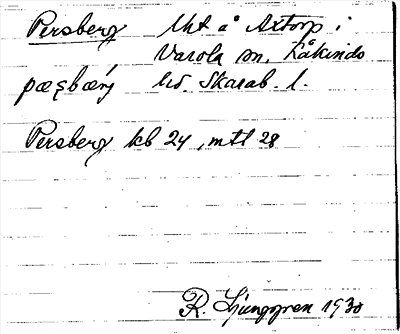 Persberg lht å Axtorp i
Varola sn, Kåkinds
pæsbærj hd. Skarab. l.
Persberg kb 24, mtl 28
R. Ljunggren 1930